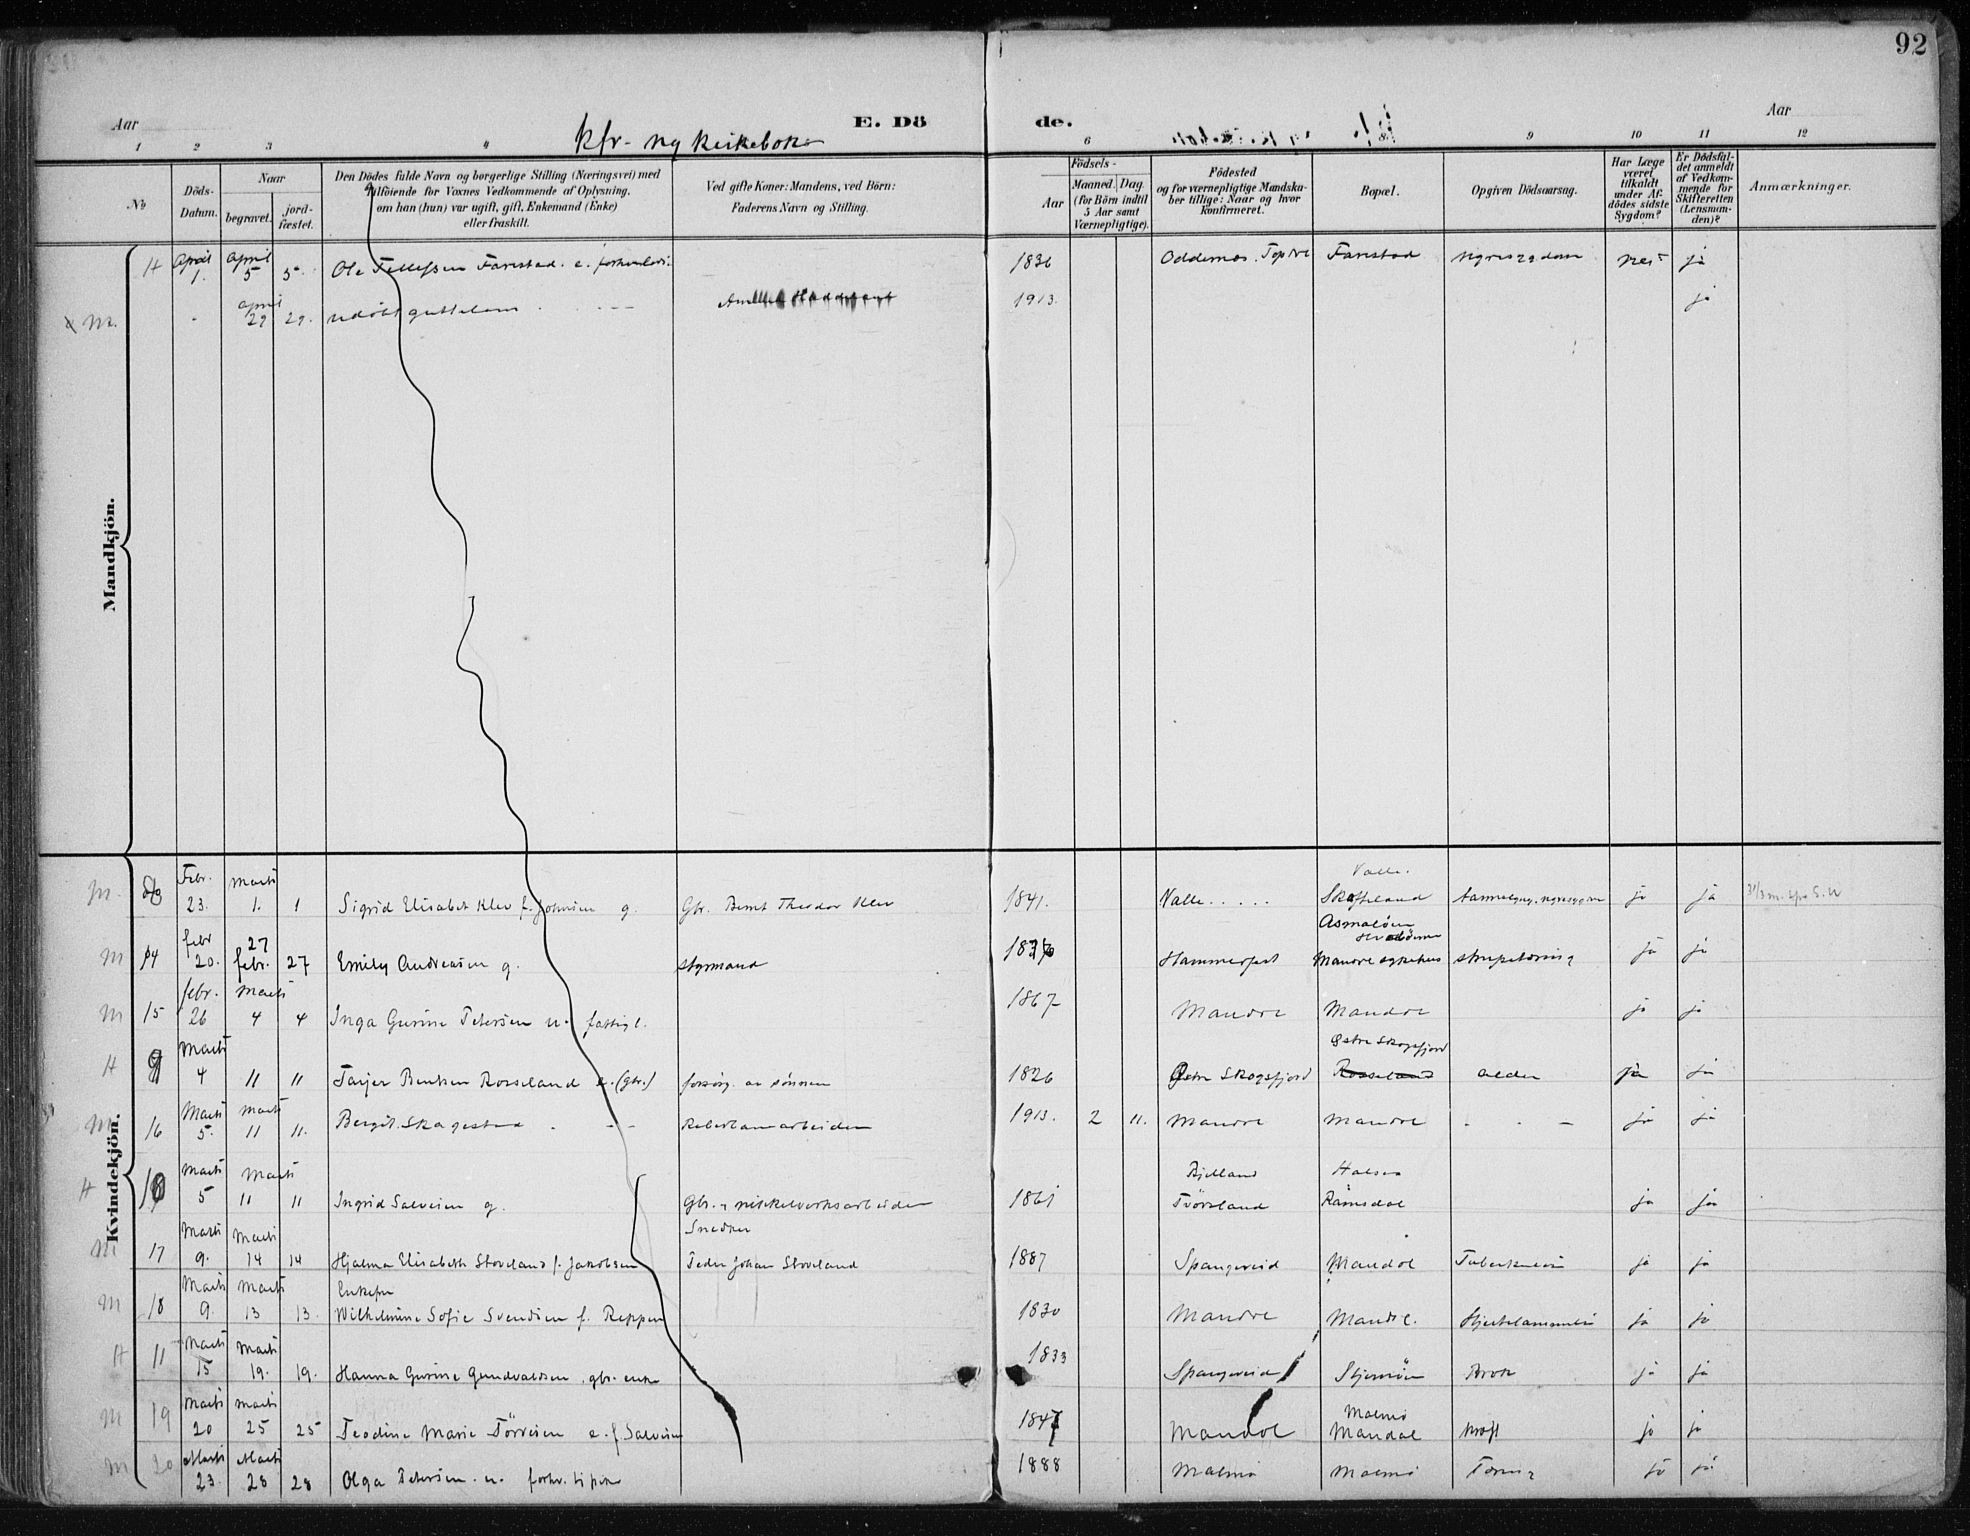 92
Aar
kfr. ny kirkebok
E. Dö de.
Aar
1 2 3 4 6 8 9 10 11 12
No
Döds-Datum.
Naar
begravet.
jord-fæstet.
Den Dödes fulde Navn og borgerlige Stilling (Næringsvei) med
tilföiende for Voxnes Vedkommende af Oplysning,
om han (hun) var ugift, gift, Enkemand (Enke)
eller fraskilt.
Ved gifte Koner: Mandens, ved Börn:
Faderens Navn og Stilling.
Födsels-
Aar
Maaned. Dag.
(for Börn indtil
5 Aar samt
Værnepligtige).
Födested
og for værnepligtige Mandska-
ber tillige: Naar og hvor
Konfirmeret.
Bopæl.
Opgiven Dödsaarsag.
Har Læge
været
tilkaldt
under Af-
dödes sidste
Sygdom?
Er Dödsfal-
det anmeldt
af Vedkom-
mende for
Skifteretten
(Lensman-
den)?
Anmærkninger.
Mandkjön.
H April 1. April 5 5. Ole Tellefsen Farestad. e. 1836 Oddernes. Farestad nei ja
M. April 29 29. 1913. ja
Kvindekjön.
M. Febr. 23. Marts 1. 1 Sigrid Elisabet Klev f. Johnsen g. Gbr. Bernt Theodor Klev 1841. Valle Valle. Skofteland ja ja
M 14 febr 20. 27 febr. 27 Emily Andreasen g. styrmand Hammerfest ja ja
M 15 febr. 26 Marts 4 4 Inga Gurine Petersen u. fattigl. 1867 Mandal Mandal ja ja
H 9 Marts 4 11 11 Tarjer Bentsen Rosseland e. (gbr.) forsörg. av sönnen 1826 Østre Skogsfjord Østre Skogsfjord Rosseland alder ja ja
M 16 Marts 5. Marts 11 11. Bergit Skagestad - - - Reberbanearbeider 1913. 2 11. Mandal Mandal - - - ja ja
H 10 Marts 5 Marts 11 11 Ingrid Salvesen g. Gbr. & nikkelverksarbeider 1861 Bjelland Halseå Rånisdal ja ja
M 17 Marts 9. Marts 14 14 Hjalma Elisabeth Stoveland f. Jakobsen Snedker Peder Johan Stoveland 1887 Spangereid Mandal ja ja
M 18 Marts 9. Marts 13 13. Enkefru Wilhelmine Sofie Svendsen f. Reppen 1830 Mandal Mandal. ja ja
H 11 Marts 15 Marts 19. 19. Hanna Gurine Gundvaldsen. gbr. enke 1833 Spangereid Skjernöen Brok ja ja
M 19 Marts 20 Marts 25 25 Teodine Marie Törresen e. f Salvesen 1847 Mandal Malmö Mandal kræft ja ja
M 20 Marts 23. Marts 28 28 Olga Petersen. u. 1888 Malmö Malmö Tæring ja ja